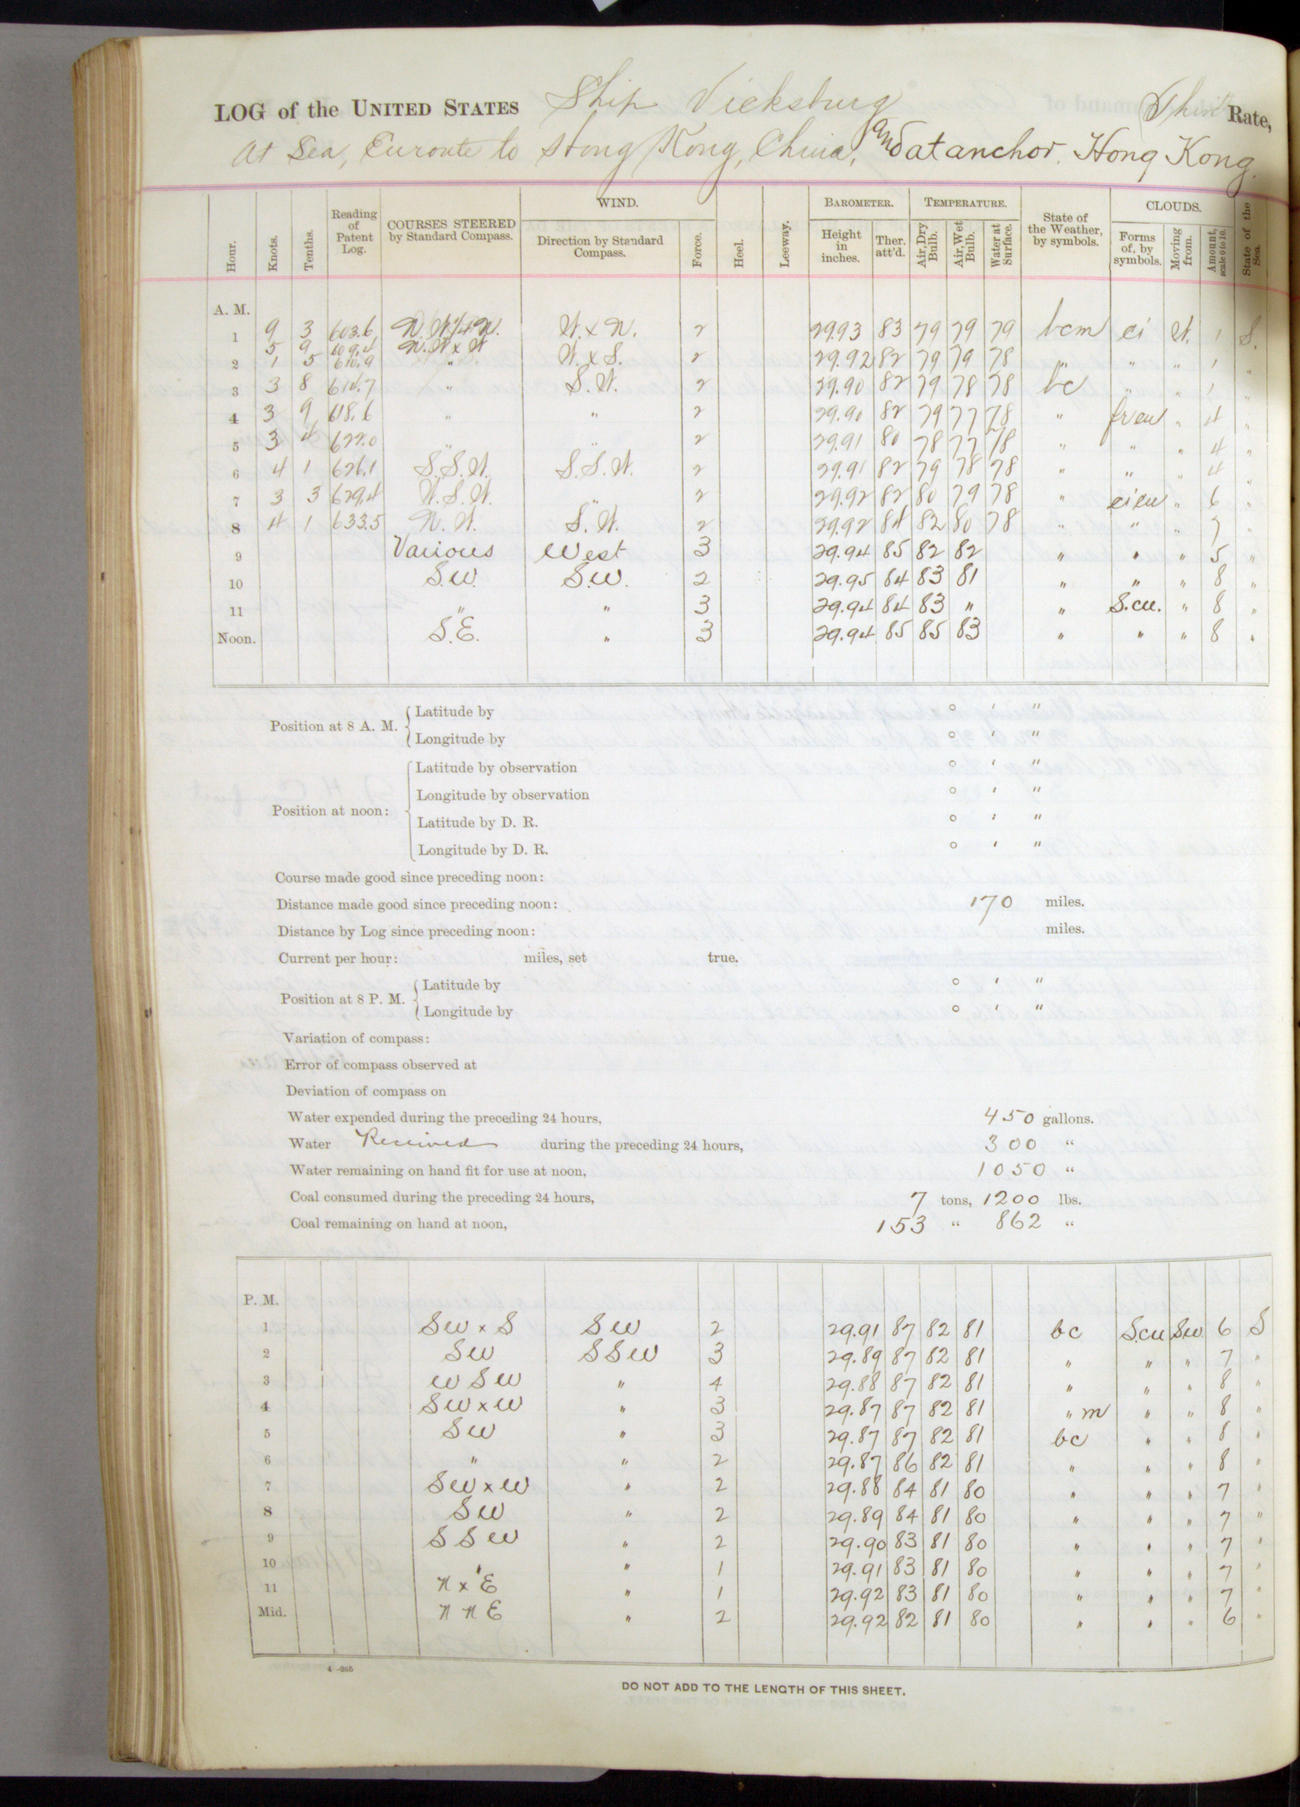 LOG of the UNITED STATES Ship Vicksburg Third Rate,
At Sea, Enroute to Hong Kong, China, and at anchor. Hong Kong.
Hour. Knots. Tenths. Reading of Patent Log. COURSES STEERED by Standard Compass. WIND. Direction by Standard Compass. Force. Heel. Leeway. BAROMETER. Height in inches. Ther. att'd. TEMPERATURE. Air, Dry Bulb. Air, Wet Bulb. Water at Surface. State of the Weather, by symbols. CLOUDS. Forms of, by symbols. Moving from. Amount, scale 0 to 10. State of the Sea.
A. M.
1 9 3 603.6 N.W¼N. W. x N. 2 29.93 83 79 79 79 bcm ci W. 1 S.
5 9 609.4 N.W x W
2 1 5 610.9 " W. x S. 2 29.92 82 79 79 78 " " " 1 "
3 3 8 614.7 " S.W. 2 29.90 82 79 78 78 bc " " 1 "
4 3 9 618.6 " " 2 29.90 82 79 77 78 " fr cu " 4 "
5 3 4 622.0 " " 2 29.91 80 78 77 78 " " " 4 "
6 4 1 626.1 S.S.W. S.S.W. 2 29.91 82 79 78 78 " " " 4 "
7 3 3 629.4 W.S.W. " 2 29.92 82 80 79 78 " ci cu " 6 "
8 4 1 633.5 N.W. S.W. 2 29.92 84 82 80 78 " " " 7 "
9 Various West 3 29.94 85 82 82 " " " 5 "
10 S.W. S.W. 2 29.95 84 83 81 " " " 8 "
11 " " 3 29.94 84 83 " " S.cu. " 8 "
Noon. S.E. " 3 29.94 85 85 83 " " " 8 "
Position at 8 A. M. Latitude by ° ' "
Longitude by ° ' "
Position at noon: Latitude by observation ° ' "
Longitude by observation ° ' "
Latitude by D. R. ° ' "
Longitude by D. R. ° ' "
Course made good since preceding noon:
Distance made good since preceding noon: 170 miles.
Distance by Log since preceding noon: miles.
Current per hour: miles, set true.
Position at 8 P. M. Latitude by ° ' "
Longitude by ° ' "
Variation of compass:
Error of compass observed at
Deviation of compass on
Water expended during the preceding 24 hours, 450 gallons.
Water Received during the preceding 24 hours, 300 "
Water remaining on hand fit for use at noon, 1050 "
Coal consumed during the preceding 24 hours, 7 tons, 1200 lbs.
Coal remaining on hand at noon, 153 " 862 "
P. M.
1 SW x S SW 2 29.91 87 82 81 bc S.cu SW 6 S
2 SW SSW 3 29.89 87 82 81 " " " 7 "
3 WSW " 4 29.88 87 82 81 " " " 8 "
4 SW x W " 3 29.87 87 82 81 " m " " 8 "
5 SW " 3 29.87 87 82 81 bc " " 8 "
6 " " 2 29.87 86 82 81 " " " 8 "
7 SW x W " 2 29.88 84 81 80 " " " 7 "
8 SW " 2 29.89 84 81 80 " " " 7 "
9 SSW " 2 29.90 83 81 80 " " " 7 "
10 " " 1 29.91 83 81 80 " " " 7 "
11 N x E " 1 29.92 83 81 80 " " " 7 "
Mid. NNE " 2 29.92 82 81 80 " " " 6 "
4—265
DO NOT ADD TO THE LENGTH OF THIS SHEET.